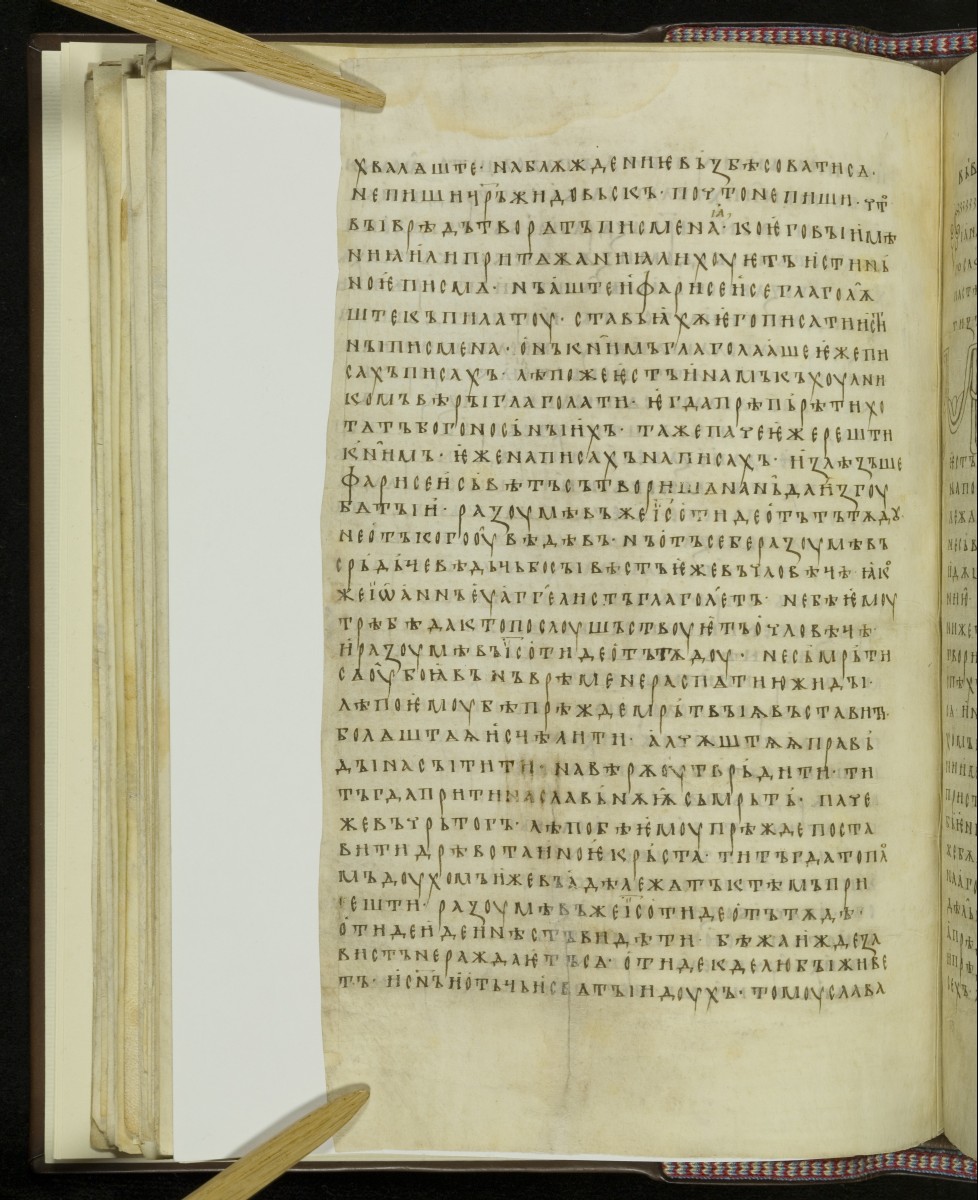 хвалѧште· на блѫждениѥ възбѣсоватисѧ·
не пиши ч҃ръ жидовьскъ· почто не пиши· что
вы врѣдѣтворѧтъ писмена· коѥго вы имѣ
ниꙗ или притѧжаниꙗ лихоуѥтъ истинь
ноѥ писмѧ· нъ аште и фарисеи се глаголѭ
штек къ пилатоу· ставьꙗхѫ ѥго писати ист҃и
ныꙇ писмена· онъ к нимъ глаголаше ѥже пи
сахъ писахъ· лѣпо же ѥстъ и намъ къ хоулни
комъ вѣры глаголати· ѥгда прѣпьрѣти хо
татъ богоносьныихъ· таже паче ѥже решти
к нимъ· ѥже написахъ написахъ· излѣзъше
фарисеи съвѣтъ сътворишѧ на нь да и изгоу
бѧтъ и· разоумѣвъ же і҃с отиде отътѫдоу
не отъ кого оувѣдѣвъ· нъ отъ себе разоумѣвъ
срьдьчевѣдьчь бо сы вѣстъ ѥже въ чловѣчѣ ꙗко
же іѡаннъ еуаггелистъ глаголетъ· не бѣ ѥмоу
трѣбѣ да кто послоушьствоуѥтъ о чловѣчѣ·
и разоумѣвъ і҃с отиде отътѫдоу· не съмрьти
сѧ оубоꙗвъ нъ врѣмене распѧтию жиды·
лѣпо ѥмоу бѣ прѣжде мрьтвыꙗ въставити·
болѧштѧѩ исчѣлити· алчѫштѧѩ правь
ды насытити· на вѣрѫ оутврьдити· ти
тъгда прити на славьнѫѭ съмрьть· паче
же въ чрьтогъ· лѣпо бѣ ѥмоу прѣжде поста
вити дрѣво таиноѥ крьста· ти тъгда топлъ
мъ доухомъ иже въ адѣ лежѧтъ к тѣмъ при
сешти· разоумѣвъ же і҃с отиде отътѫдѣ·
отиде идеже нѣстъ видѣти· бѣжа иждеза
вистъ не раждаѥтъ сѧ· отиде кде любы живе
тъ· и с҃нъ и отьчь и свѧтыи доухъ· томоу слава